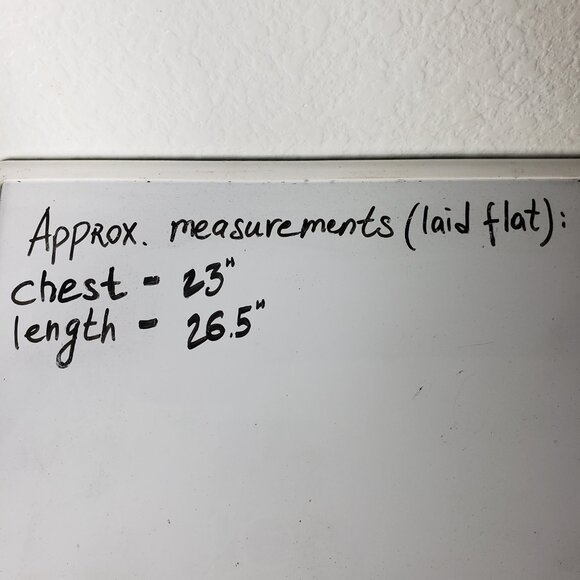 Approx. measurements (laid flat):
chest - 23"
length - 26.5"